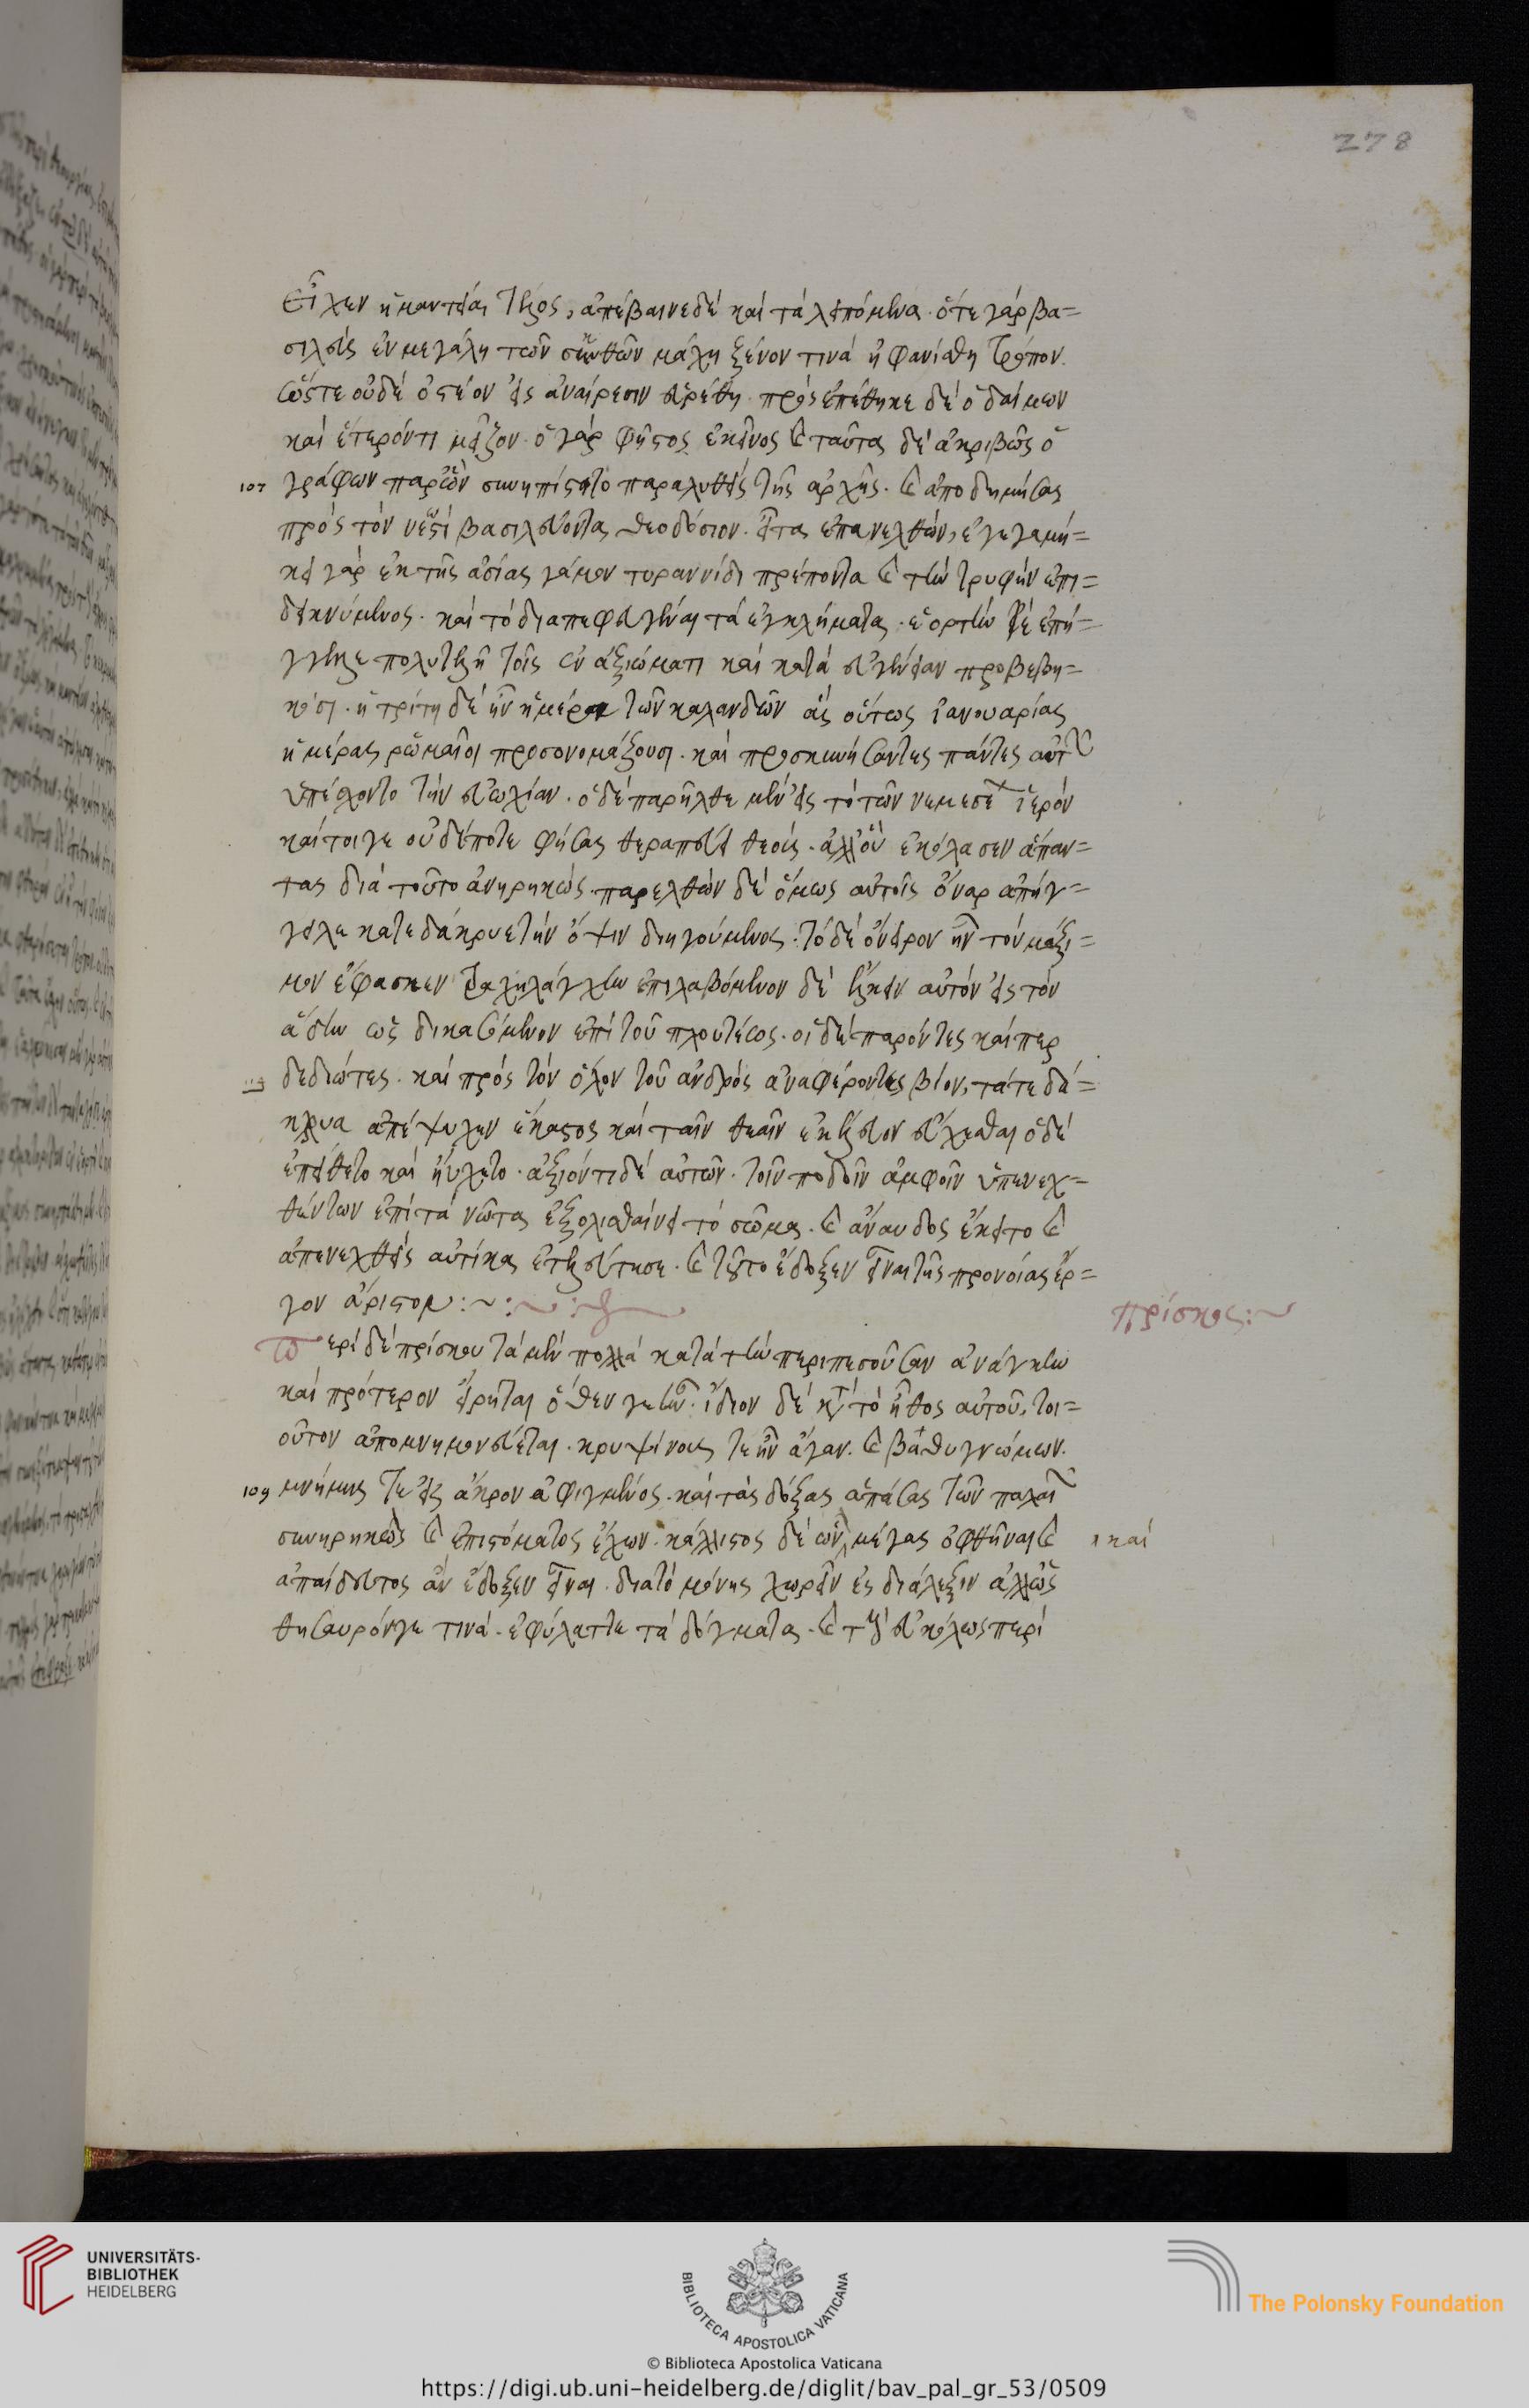 278
Εἶχεν ἡ μαντεία τέλος, ἀπέβαινε δὲ καὶ τὰ λειπόμενα. ὅτε γὰρ βα=
σιλεὺς ἐν μεγάλη τῶν σκυθῶν μάχη ξένον τινὰ ἠφανίσθη τρόπον.
ὥστε οὐδὲ ὀστέον εἰς ἀναίρεσιν εὑρέθη. πρὸς ἐπέθηκε δὲ ὁ δαίμων
καὶ ἕτερόν τι μεῖζον. ὁ γὰρ φῆστος ἐκεῖνος καὶ ταῦτα δὲ ἀκριβῶς ὁ
107 γράφων παρὼν συνηπίστατο παραλυθεὶς τῆς ἀρχῆς. καὶ ἀποδημήσας
πρὸς τὸν νεωστὶ βασιλεύοντα θεοδόσιον. εἶτα ἐπανελθών, ἐγεγαμή=
κει γὰρ ἐκ τῆς ἀσίας γάμον τυραννίδι πρέποντα καὶ τὴν τρυφὴν ἐπι=
δεικνύμενος. καὶ τὸ διαπεφευγέναι τὰ ἐγκλήματα. ἑορτὴν δὲ ἐπή=
γγειλε πολυτελῆ τοῖς ἐν ἀξιώματι καὶ κατὰ εὐγένειαν προβεβη=
κόσι. ἡ τρίτη δὲ ἦν ἡμέρα τῶν καλανδῶν ἃς οὕτως ἰανουαρίας
ἡμέρας ῥωμαῖοι προσονομάζουσι. καὶ προσκυνήσαντες πάντες αὐτὸν
ὑπέσχοντο τὴν εὐωχίαν. ὁ δὲ παρῆλθε μὲν εἰς τὸ τῶν νεμέσεων ἱερὸν
καίτοιγε οὐδέποτε φήσας θεραπεύειν θεούς. ἀλλ' οὓς ἐκόλασεν ἅπαν=
τας διὰ τοῦτο ἀνῃρηκώς. παρελθὼν δὲ ὅμως αὐτοῖς ὄναρ ἀπήγ=
γειλε κατεδάκρυε τὴν ὄψιν διηγούμενος. τὸ δὲ ὄνειρον ἦν τὸν μάξι=
μον ἔφασκεν τραχηλάγχην ἐπιλαβόμενον δὲ ἕλκειν αὐτὸν εἰς τὸν
ἅδην ὡς δικασόμενον ἐπὶ τοῦ πλουτέως. οἱ δὲ παρόντες καίπερ
δεδιότες. καὶ πρὸς τὸν ὅλον τοῦ ἀνδρὸς ἀναφέροντες βίον, τά τε δά=
κρυα ἀπέψυχεν ἕκαστος καὶ ταῖν θεαῖν ἐκέλευον εὔχεσθαι ὁ δὲ
ἐπείθετο καὶ ηὔχετο. ἀξιόντι δὲ αὐτῶν. τοῖν ποδοῖν ἀμφοῖν ὑπενεχ=
θέντων ἐπὶ τὰ νῶτα ἐξολισθαίνει τὸ σῶμα. καὶ ἄναυδος ἔκειτο καὶ
ἀπενεχθεὶς αὐτίκα ἐτελεύτησε. καὶ τοῦτο ἔδοξεν εἶναι τῆς προνοίας ἔρ=
γον ἄριστον:~:~:~
πρίσκος:~
Περὶ δὲ πρίσκου τὰ μὲν πολλὰ κατὰ τὴν περιπεσοῦσαν ἀνάγκην
καὶ πρότερον εἴρηται ὅθεν γε ἦν. ἴδιον δὲ κατὰ τὸ ἦθος αὐτοῦ, τοι=
οῦτον ἀπομνημονεύεται. κρυψίνους τε ἦν ἄγαν. καὶ βαθυγνώμων.
109 μνήμης τε εἰς ἄκρον ἀφιγμένος. καὶ τὰς δόξας ἁπάσας τῶν παλαιῶν
συνηρηκὼς καὶ ἐπιστόματος ἔχων. κάλλιστος δὲ ὢν μέγας ὀφθῆναι καὶ καὶ
ἀπαίδευτος ἂν ἔδοξεν εἶναι. διὰ τὸ μόνης χωρεῖν ἐς διάλεξιν ἀλλ' ὡς
θησαυρόν γε τινὰ. ἐφύλαττε τὰ δόγματα. καὶ τοὺς εὐκόλως περὶ
UNIVERSITÄTS-
BIBLIOTHEK
HEIDELBERG
BIBLIOTECA APOSTOLICA VATICANA
The Polonsky Foundation
© Biblioteca Apostolica Vaticana
https://digi.ub.uni-heidelberg.de/diglit/bav_pal_gr_53/0509